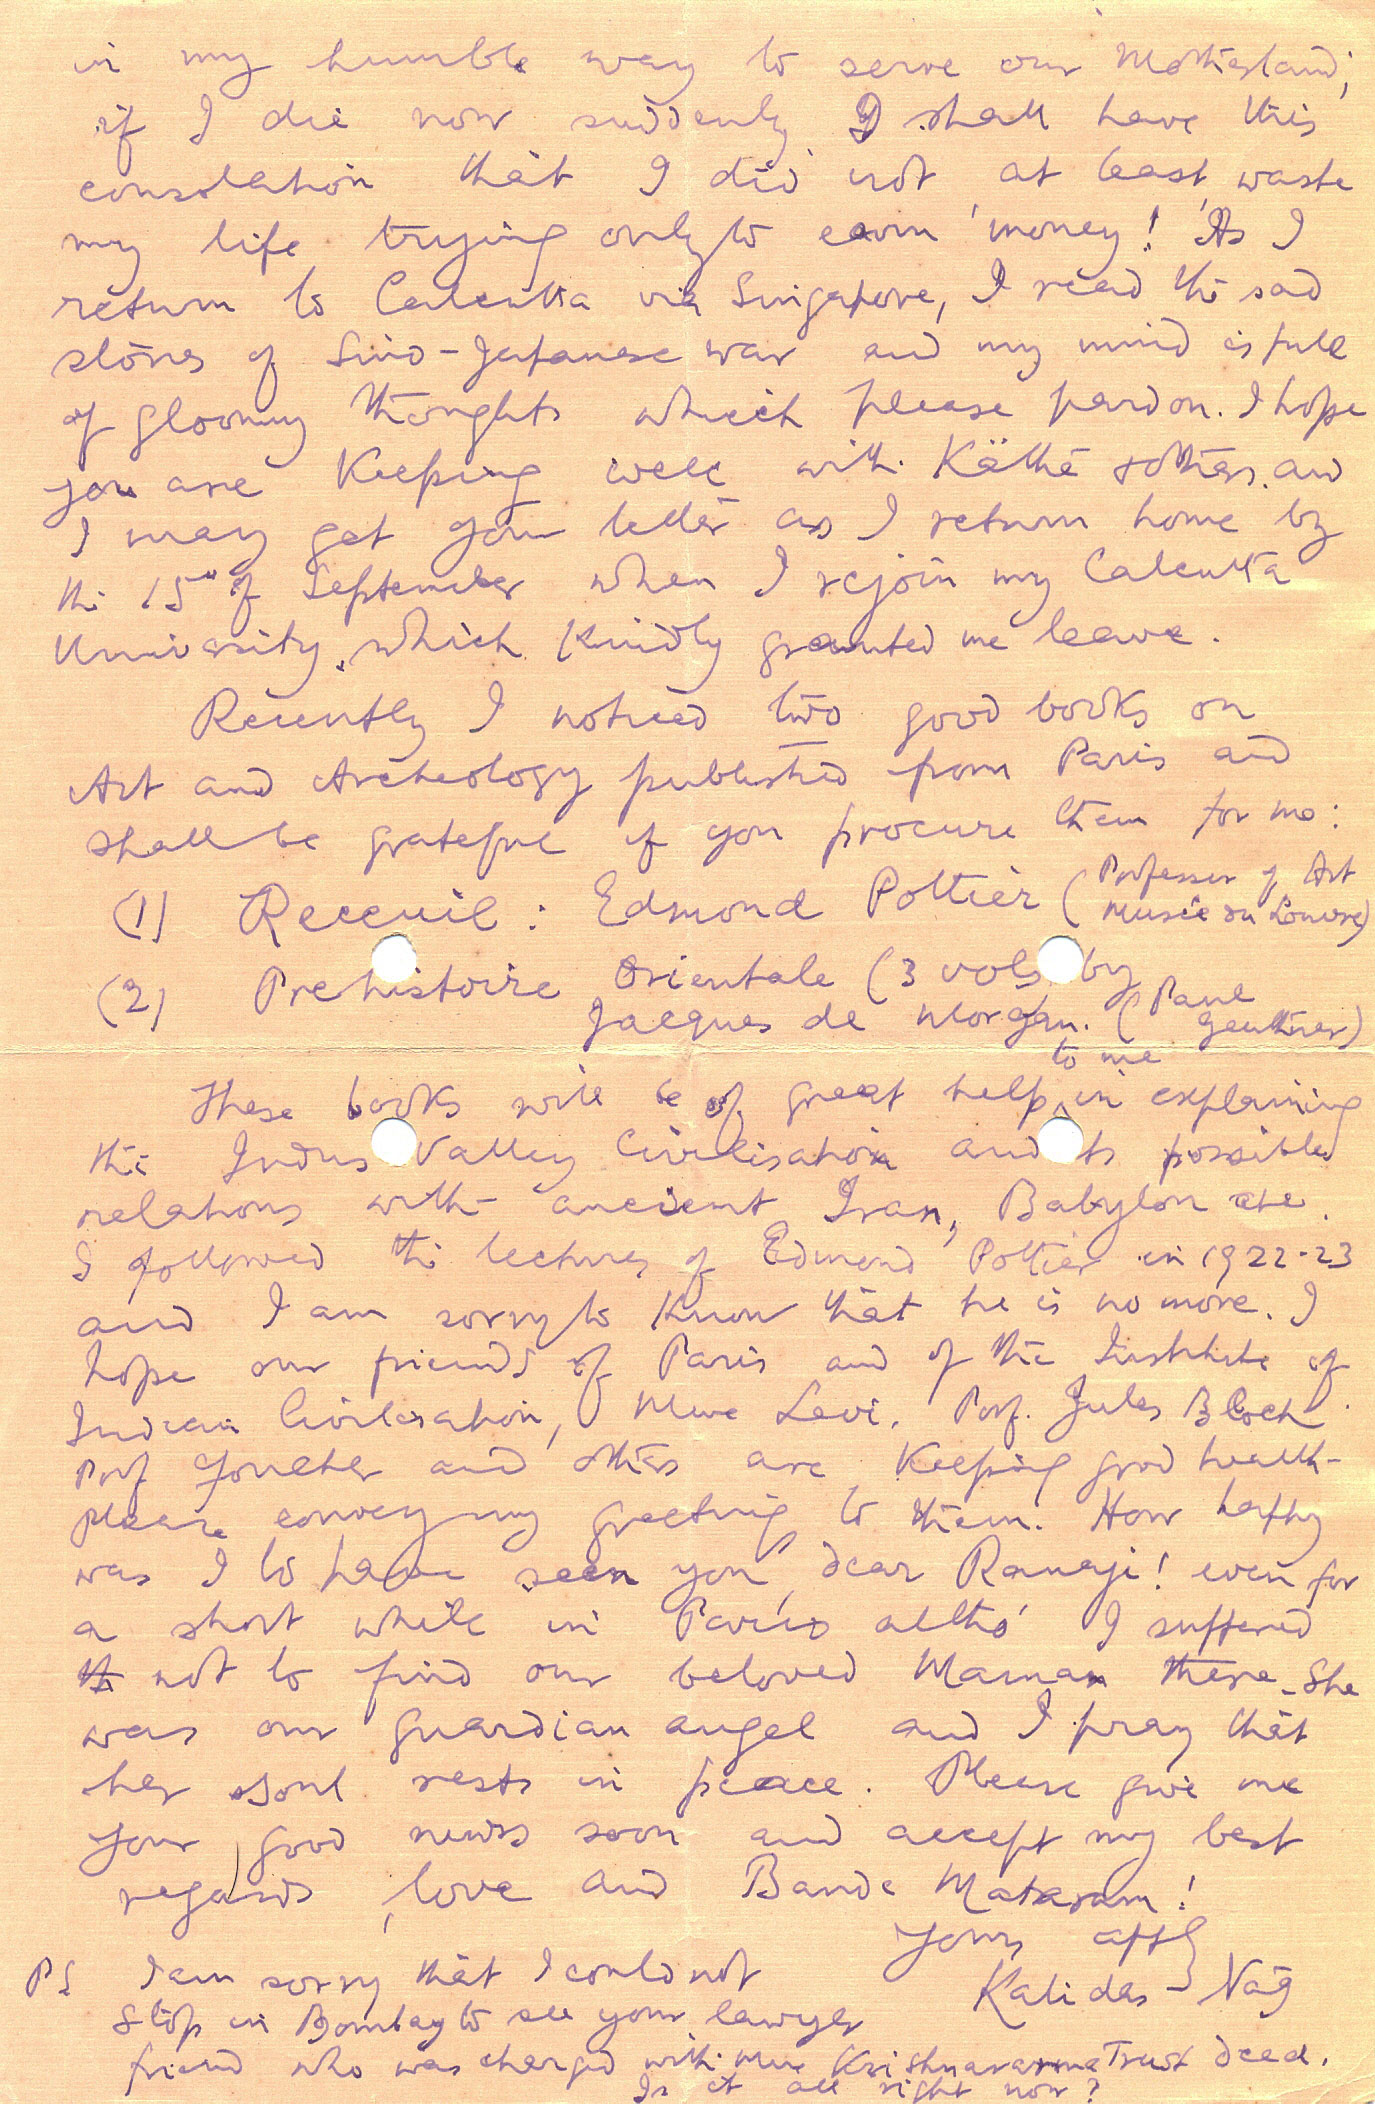 in my humble way to serve our Motherland;
if I die now suddenly I shall have this
consolation that I did not, at least, waste
my life trying only to earn 'money'! As I
return to Calcutta via Singapore, I read the sad
stories of Sino-Japanese war and my mind is full
of gloomy thoughts which please pardon. I hope
you are keeping well with Käthe & others and
I may get your letter as I return home by
the 15th of September when I rejoin my Calcutta
University which kindly granted me leave.
Recently I noticed two good books on
Art and Archeology published from Paris and
shall be grateful if you procure them for me:
(1) Receuil: Edmond Pottier (Professer of Art
Musée du Louvre)
(2) Prehistoire Orientale (3 vols) by
Jacques de Morgan. (Paul
Geuthner)
to me
These books will be of great help in explaining
the Indus Valley Civilisation and its possible
relations with ancient Iran, Babylon etc.
I followed the lectures of Edmond Pottier in 1922-23
and I am sorry to know that he is no more. I
hope our friends of Paris and of the Institute of
Indian Civilisation, Mme Levi, Prof. Jules Bloch
Prof Foucher and others are keeping good health-
please convey my greeting to them. How happy
was I to have seen you, dear Ranaji! even for
a short while in Paris altho' I suffered
not to find our beloved Maman there - She
was our guardian angel and I pray that
her soul rests in peace. Please give me
your good news soon and accept my best
regards, love and Bande Mataram!
Yours affly
Kalidas Nag
PS I am sorry that I could not
stop in Bombay to see your lawyer
friend who was charged with Mme Krishnavarma Trust deed.
Is it all right now?